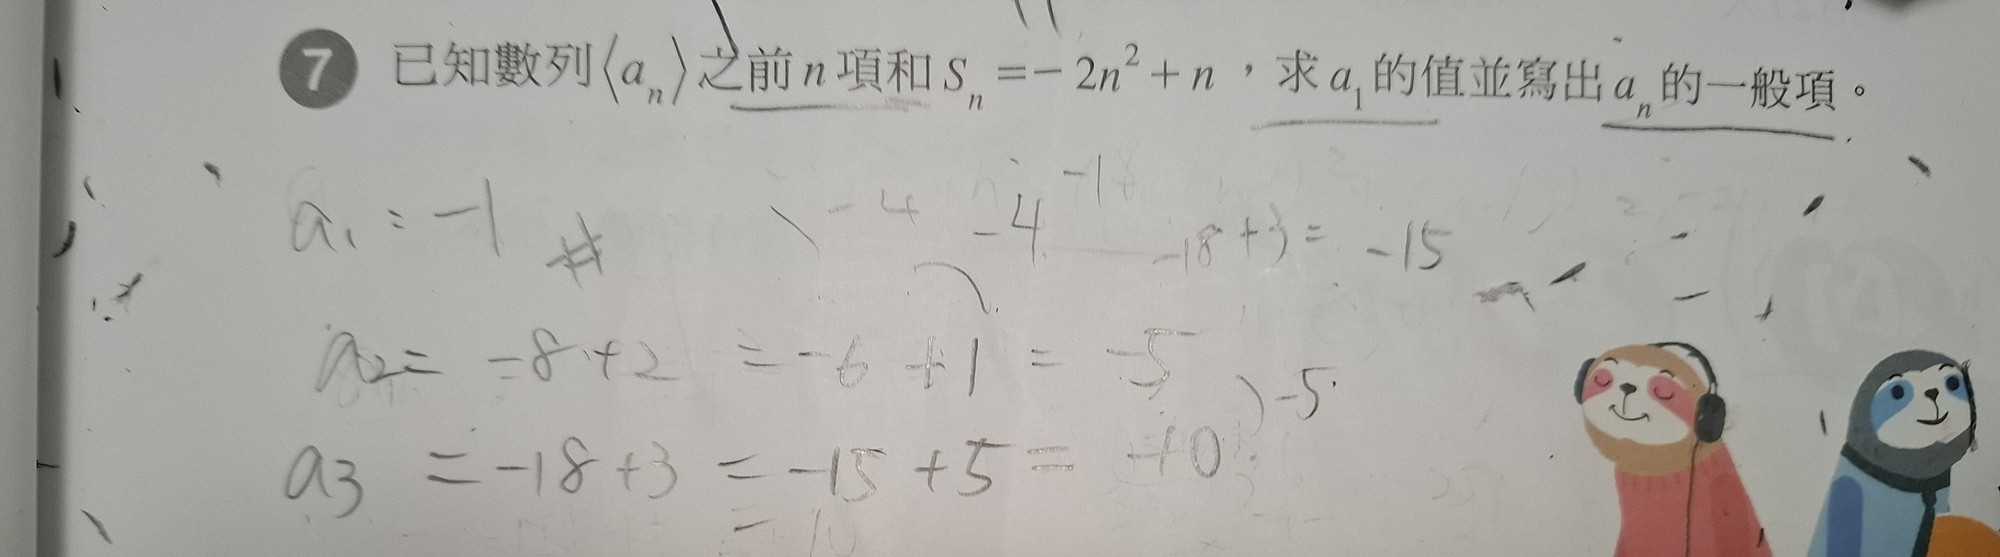 7 已知數列⟨aₙ⟩之前n項和Sₙ=−2n²+n，求a₁的值並寫出aₙ的一般項。
a₁ = -1 #
-4 -4 -18+3= -15
a₂= -8+2 = -6 +1 = -5
) -5
a₃ = -18+3 = -15 +5 = -10